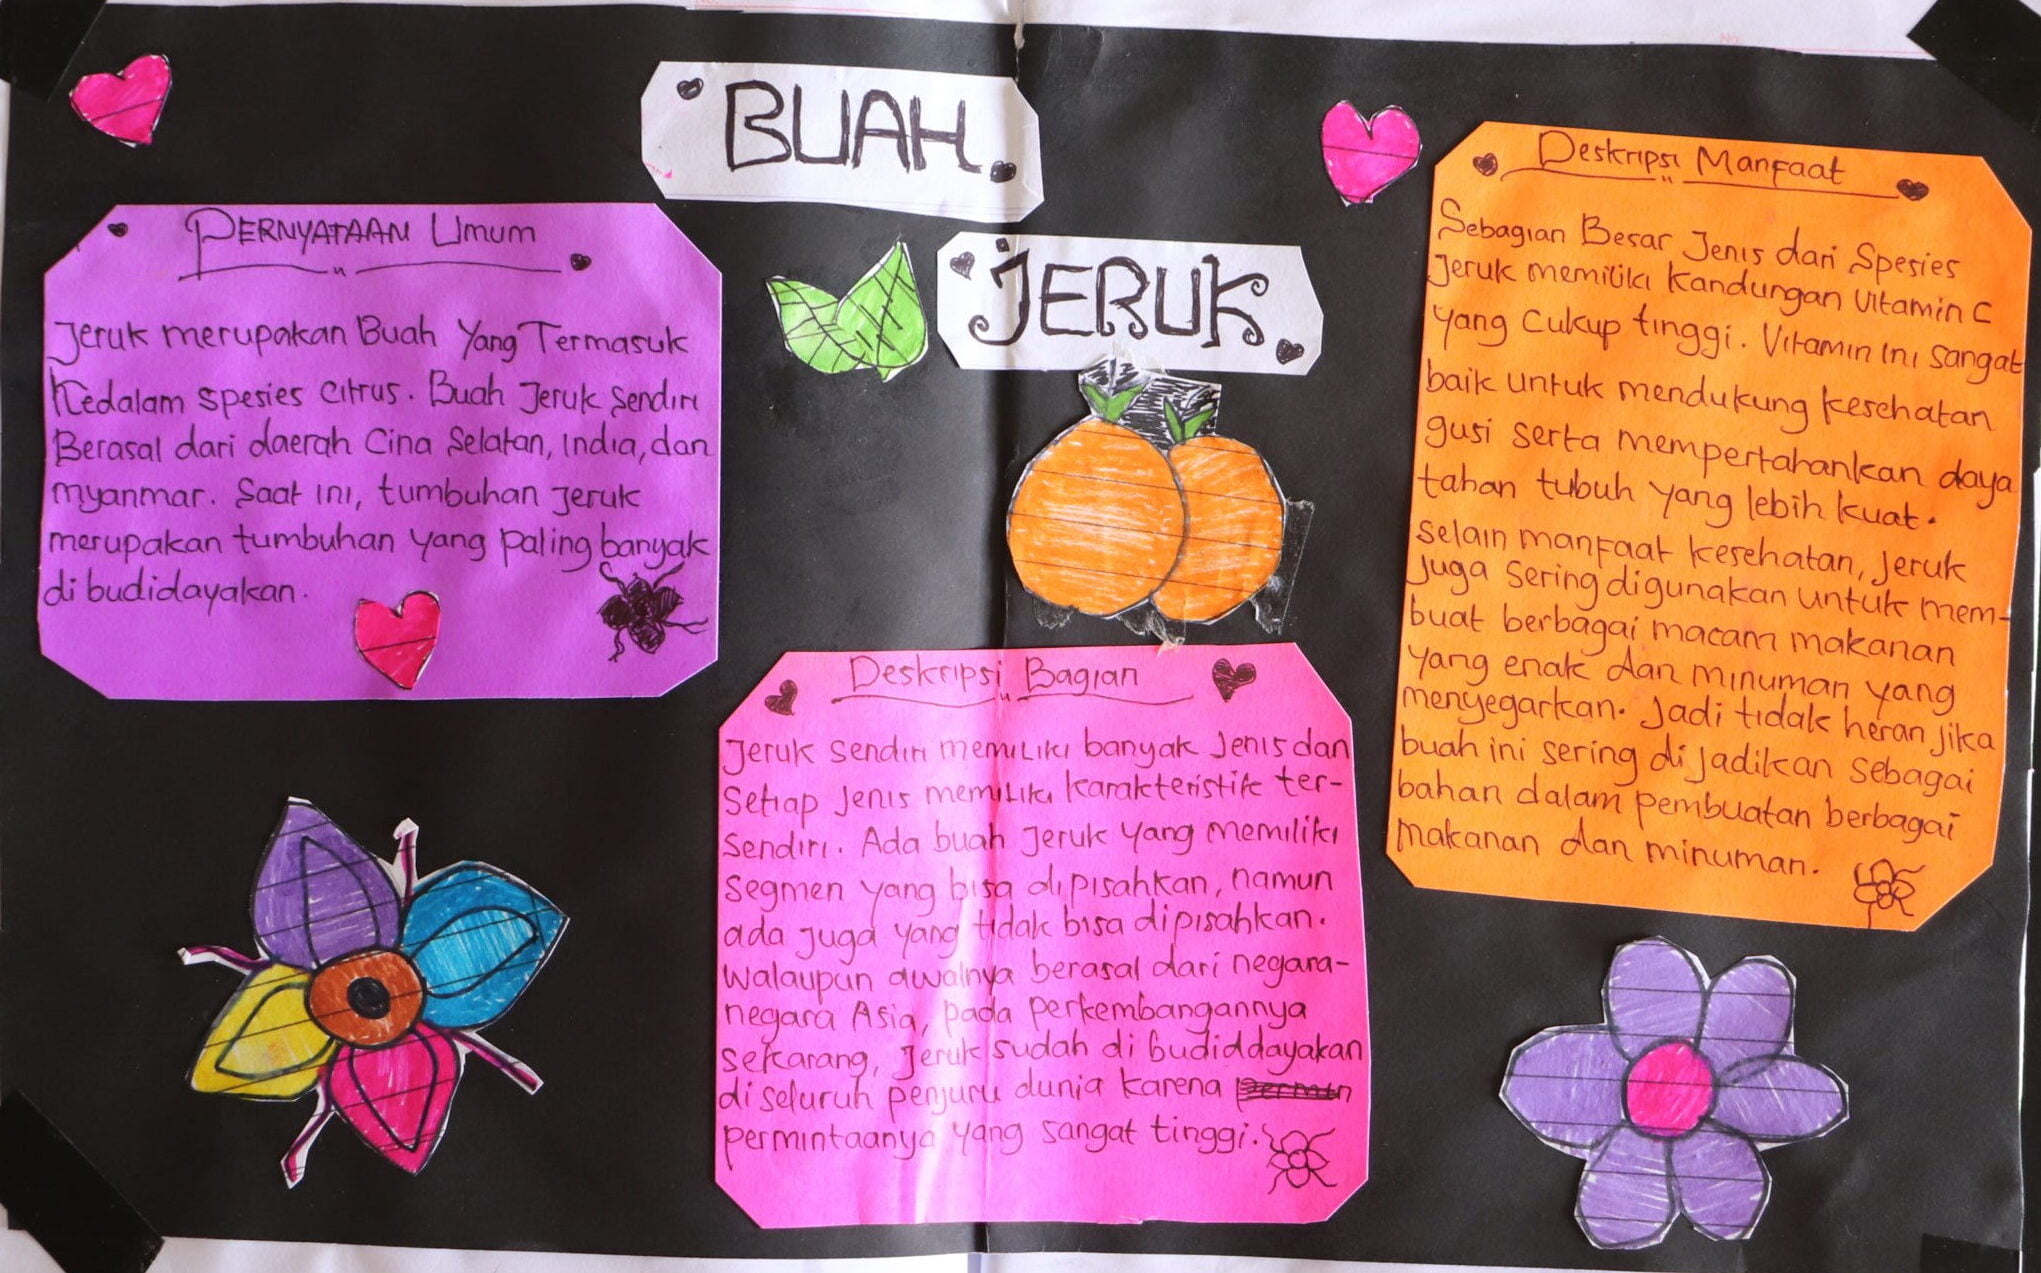 BUAH
JERUK
PERNYATAAN Umum
Jeruk merupakan Buah Yang Termasuk
Kedalam spesies citrus. Buah Jeruk sendiri
Berasal dari daerah Cina Selatan, India, dan
myanmar. Saat ini, tumbuhan Jeruk
merupakan tumbuhan yang paling banyak
di budidayakan.
Deskripsi Bagian
Jeruk sendiri memiliki banyak Jenis dan
Setiap Jenis memiliki karakteristik ter-
sendiri. Ada buah Jeruk yang memiliki
segmen yang bisa dipisahkan, namun
ada juga yang tidak bisa dipisahkan.
walaupun awalnya berasal dari negara-
negara Asia, pada perkembangannya
sekarang, Jeruk sudah di budiddayakan
di seluruh penjuru dunia karena
permintaanya yang sangat tinggi.
Deskripsi Manfaat
Sebagian Besar Jenis dari Spesies
Jeruk memiliki Kandungan Vitamin C
yang Cukup tinggi. Vitamin ini sangat
baik untuk mendukung kesehatan
gusi serta mempertahankan daya
tahan tubuh yang lebih kuat.
selain manfaat kesehatan, Jeruk
Juga sering digunakan untuk mem-
buat berbagai macam makanan
yang enak dan minuman yang
menyegarkan. Jadi tidak heran jika
buah ini sering di jadikan sebagai
bahan dalam pembuatan berbagai
makanan dan minuman.